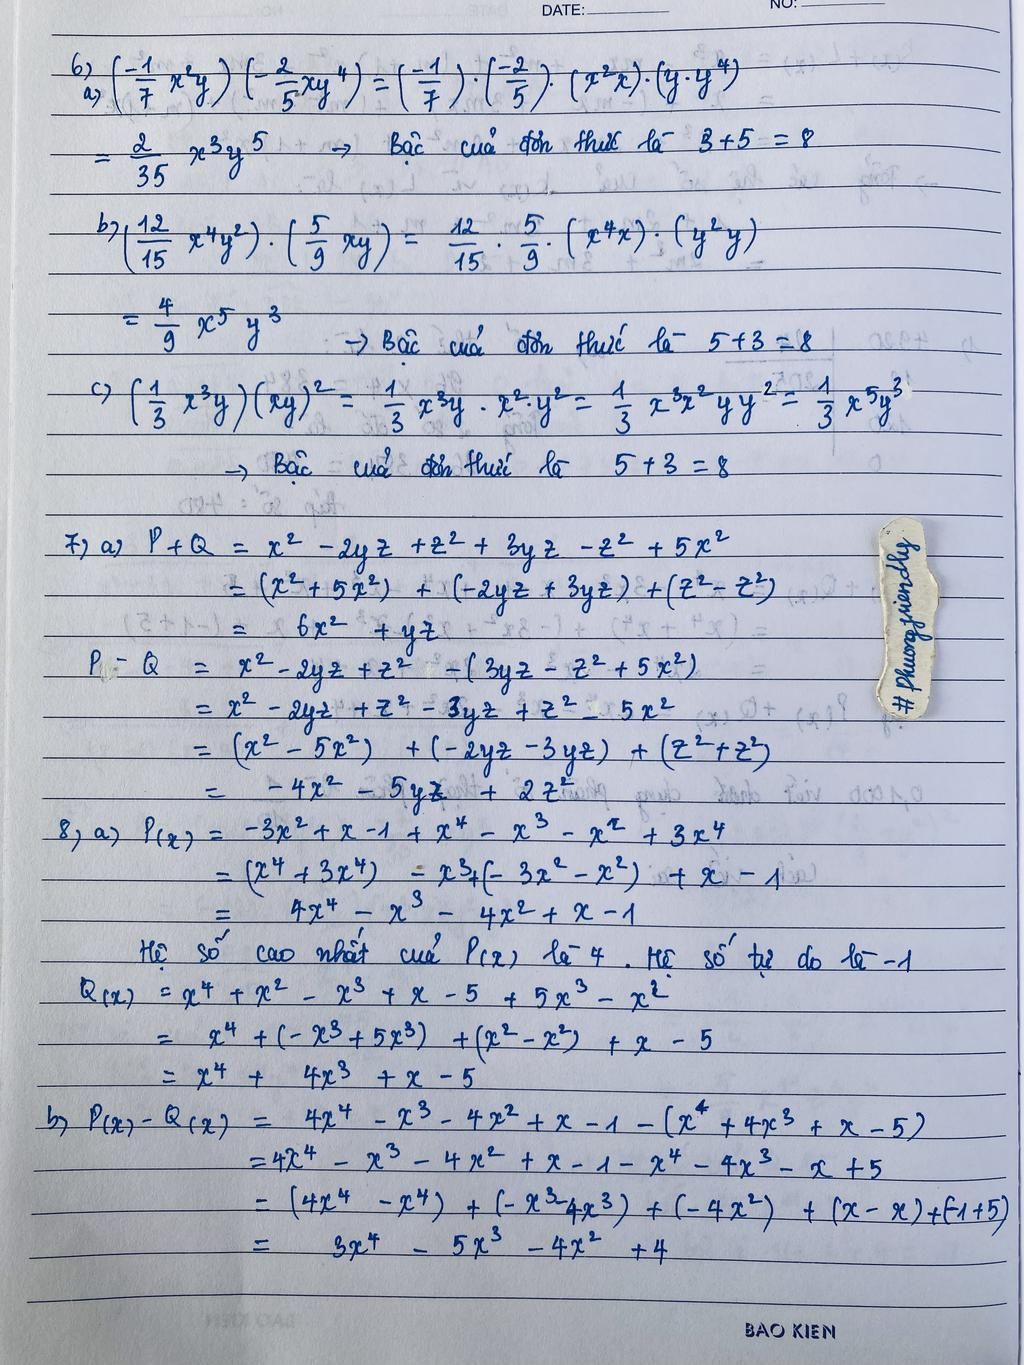 DATE: NO:
6) a) (-1/7 x²y) (-2/5 xy⁴) = (-1/7) · (-2/5) · (x²x) · (y · y⁴)
= 2/35 x³y⁵ → Bậc của đơn thức là 3 + 5 = 8
b) (12/15 x⁴y²) · (5/9 xy) = 12/15 · 5/9 · (x⁴x) · (y²y)
= 4/9 x⁵ y³
→ Bậc của đơn thức là 5 + 3 = 8
c) (1/3 x³y) (xy)² = 1/3 x³y · x² · y² = 1/3 x³x² y y² = 1/3 x⁵y³
→ Bậc của đơn thức là 5 + 3 = 8
7) a) P + Q = x² - 2yz + z² + 3yz - z² + 5x²
= (x² + 5x²) + (-2yz + 3yz) + (z² - z²)
= 6x² + yz
P - Q = x² - 2yz + z² - (3yz - z² + 5x²)
= x² - 2yz + z² - 3yz + z² - 5x²
= (x² - 5x²) + (-2yz - 3yz) + (z² + z²)
= -4x² - 5yz + 2z²
8) a) P(x) = -3x² + x - 1 + x⁴ - x³ - x² + 3x⁴
= (x⁴ + 3x⁴) - x³ + (-3x² - x²) + x - 1
= 4x⁴ - x³ - 4x² + x - 1
Hệ số cao nhất của P(x) là 4. Hệ số tự do là -1
Q(x) = x⁴ + x² - x³ + x - 5 + 5x³ - x²
= x⁴ + (-x³ + 5x³) + (x² - x²) + x - 5
= x⁴ + 4x³ + x - 5
b) P(x) - Q(x) = 4x⁴ - x³ - 4x² + x - 1 - (x⁴ + 4x³ + x - 5)
= 4x⁴ - x³ - 4x² + x - 1 - x⁴ - 4x³ - x + 5
= (4x⁴ - x⁴) + (-x³ - 4x³) + (-4x²) + (x - x) + (-1 + 5)
= 3x⁴ - 5x³ - 4x² + 4
#Phuongfriendly
BAO KIEN